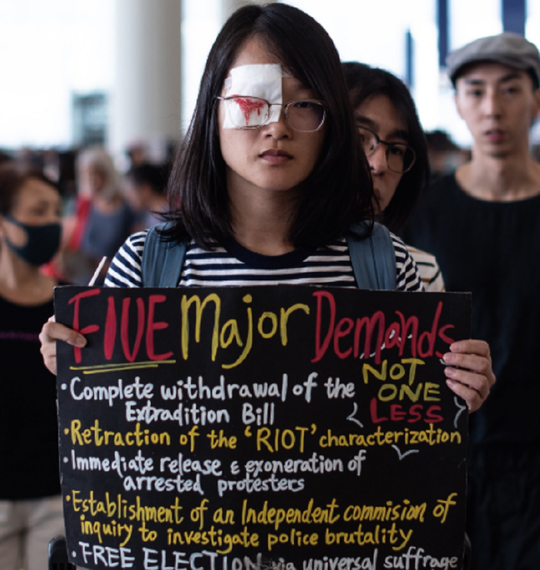 FIVE Major Demands
NOT
ONE
LESS
· Complete withdrawal of the
Extradition Bill
· Retraction of the 'RIOT' characterization
· Immediate release & exoneration of
arrested protesters
· Establishment of an Independent commision of
inquiry to investigate police brutality
· FREE ELECTION via universal suffrage